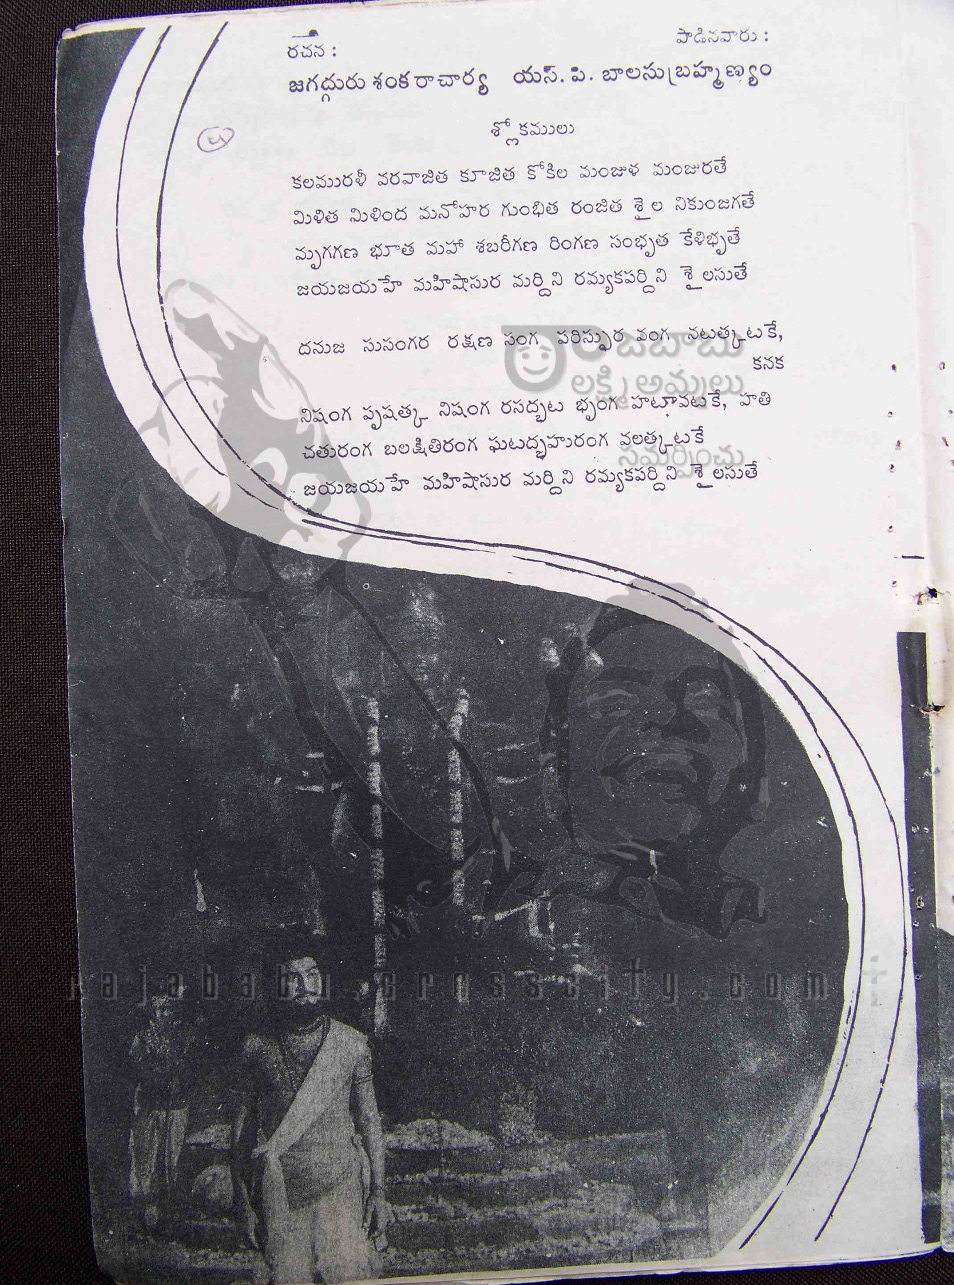 రచన :
పాడినవారు :
జగద్గురు శంకరాచార్య యస్. పి. బాలసుబ్రహ్మణ్యం
శ్లోకములు
కలమురళీ వరవాజిత కూజిత కోకిల మంజుళ మంజురతే
మిళిత మిళింద మనోహర గుంభిత రంజిత శైల నికుంజగతే
మృగగణ భూత మహా శబరీగణ రింగణ సంభృత కేళిభృతే
జయజయహే మహిషాసుర మర్దిని రమ్యకపర్దిని శైలసుతే
దనుజ సుసంగర రక్షణ సంగ పరిస్ఫుర వంగ నటత్కటకే,
కనక
నిషంగ పృషత్క నిషంగ రసద్భట భృంగ హటావటకే, హతి
చతురంగ బలక్షితిరంగ ఘటద్భహురంగ వలత్కటకే
జయజయహే మహిషాసుర మర్దిని రమ్యకపర్దిని శైలసుతే
రాజబాబు
లక్ష్మి అమ్మలు
సమర్పించు
rajababu.crosscity.com